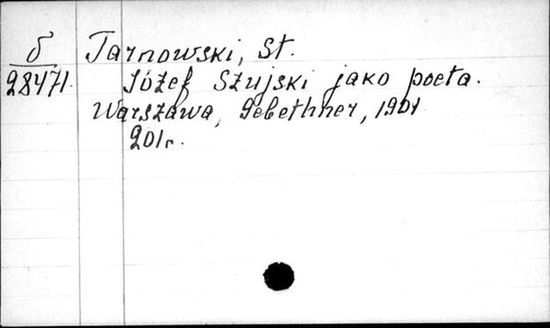 δ
28471.
Tarnowski, St.
Józef Szujski jako poeta.
Warszawa, Gebethner, 1901
201r.